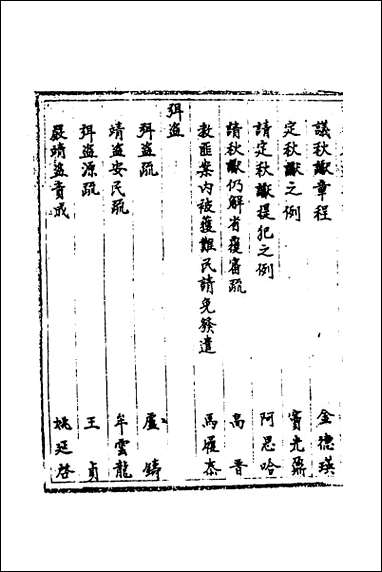 議秋讞章程 金德瑛
定秋讞之例 竇光鼐
請定秋讞提犯之例 阿思哈
請秋讞仍解省覆審疏 高晋
教匪案內被獲難民請免發遣 馬履泰
弭盜
弭盜疏 盧鑄
靖盜安民疏 牟雲龍
弭盜源疏 王貞
嚴靖盜責成 姚廷啓